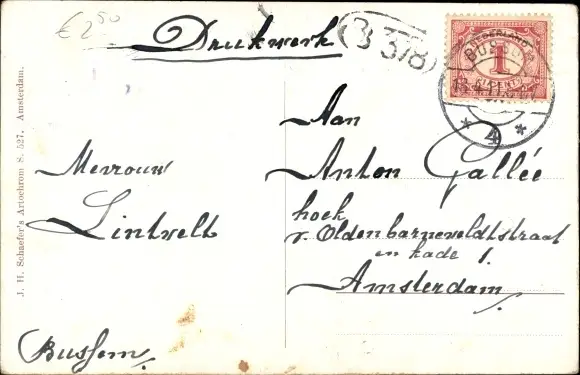 € 2,50
Drukwerk
NEDERLAND
BUSSUM
1
CENT
4
Aan
Anton Gallée
hoek
v. Oldenbarneveldtstraat
en kade 1.
Amsterdam
Mevrouw
Lintvelt
Bussem
J. H. Schaefer's Artochrom S. 527, Amsterdam.